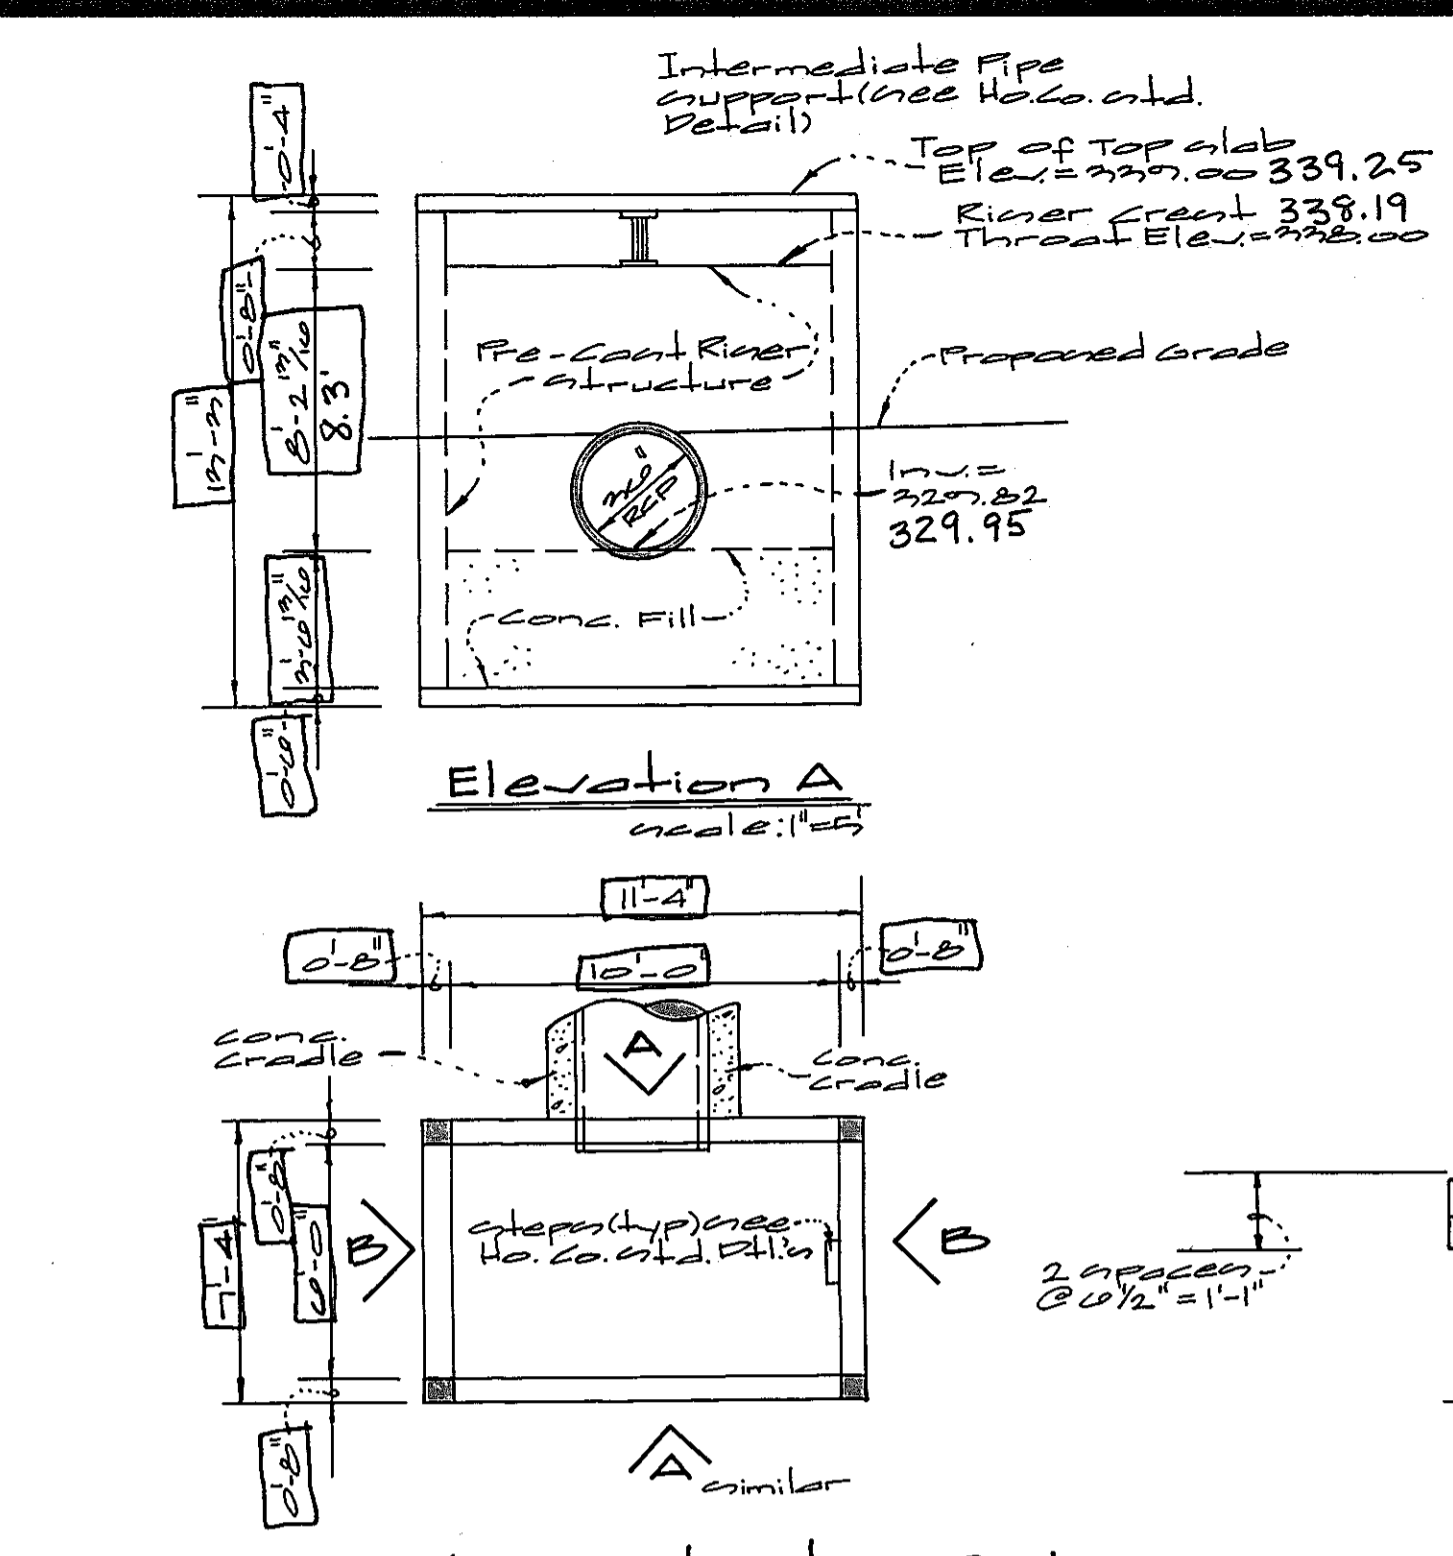 Intermediate Pipe
Support (See Ho.Co. Std.
Detail)
Top of Top Slab
Elev. = 339.00 339.25
Riser Crest 338.19
Throat Elev. = 338.00
0'-4"
0'-8"
8'-2 13/16"
8.3'
13'-3"
3'-6 13/16"
0'-6"
Pre-Cast Riser
Structure
Proposed Grade
36"
RCP
Inv. =
329.82
329.95
Conc. Fill
Elevation A
Scale: 1" = 5'
11'-4"
0'-8"
10'-0"
0'-8"
Conc.
Cradle
A
Conc.
Cradle
0'-8"
7'-4"
6'-0"
B
Steps (typ) See
Ho. Co. Std. Dtl.'s
B
2 Spaces
@ 6 1/2" = 1'-1"
0'-8"
A Similar